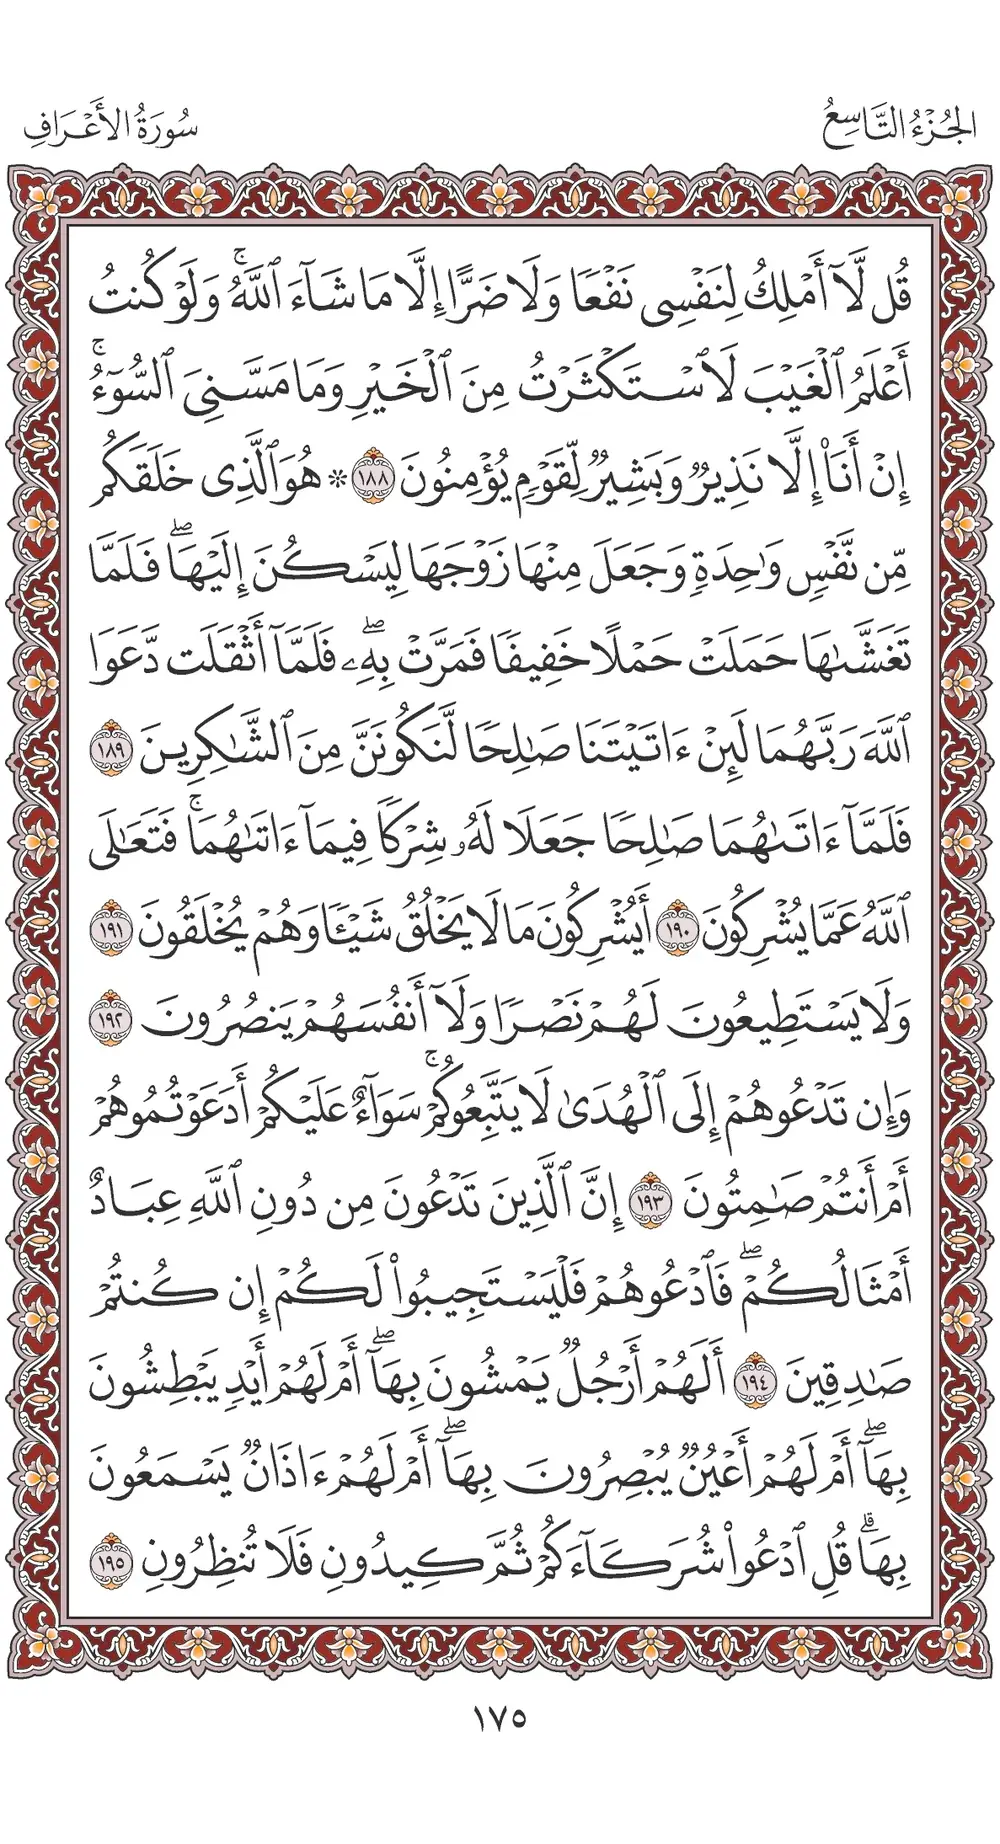 الجُزْءُ التَّاسِعُ
سُورَةُ الأَعْرَافِ
قُل لَّآ أَمْلِكُ لِنَفْسِى نَفْعًا وَلَا ضَرًّا إِلَّا مَا شَآءَ ٱللَّهُۚ وَلَوْ كُنتُ
أَعْلَمُ ٱلْغَيْبَ لَٱسْتَكْثَرْتُ مِنَ ٱلْخَيْرِ وَمَا مَسَّنِىَ ٱلسُّوٓءُۚ
إِنْ أَنَا۠ إِلَّا نَذِيرٌ وَبَشِيرٌ لِّقَوْمٍ يُؤْمِنُونَ ١٨٨ * هُوَ ٱلَّذِى خَلَقَكُم
مِّن نَّفْسٍ وَٰحِدَةٍ وَجَعَلَ مِنْهَا زَوْجَهَا لِيَسْكُنَ إِلَيْهَاۖ فَلَمَّا
تَغَشَّىٰهَا حَمَلَتْ حَمْلًا خَفِيفًا فَمَرَّتْ بِهِۦۖ فَلَمَّآ أَثْقَلَت دَّعَوَا
ٱللَّهَ رَبَّهُمَا لَئِنْ ءَاتَيْتَنَا صَٰلِحًا لَّنَكُونَنَّ مِنَ ٱلشَّٰكِرِينَ ١٨٩
فَلَمَّآ ءَاتَىٰهُمَا صَٰلِحًا جَعَلَا لَهُۥ شُرَكَآءَ فِيمَآ ءَاتَىٰهُمَاۚ فَتَعَٰلَى
ٱللَّهُ عَمَّا يُشْرِكُونَ ١٩٠ أَيُشْرِكُونَ مَا لَا يَخْلُقُ شَيْـًٔا وَهُمْ يُخْلَقُونَ ١٩١
وَلَا يَسْتَطِيعُونَ لَهُمْ نَصْرًا وَلَآ أَنفُسَهُمْ يَنصُرُونَ ١٩٢
وَإِن تَدْعُوهُمْ إِلَى ٱلْهُدَىٰ لَا يَتَّبِعُوكُمْۚ سَوَآءٌ عَلَيْكُمْ أَدَعَوْتُمُوهُمْ
أَمْ أَنتُمْ صَٰمِتُونَ ١٩٣ إِنَّ ٱلَّذِينَ تَدْعُونَ مِن دُونِ ٱللَّهِ عِبَادٌ
أَمْثَالُكُمْۖ فَٱدْعُوهُمْ فَلْيَسْتَجِيبُوا۟ لَكُمْ إِن كُنتُمْ
صَٰدِقِينَ ١٩٤ أَلَهُمْ أَرْجُلٌ يَمْشُونَ بِهَآۖ أَمْ لَهُمْ أَيْدٍ يَبْطِشُونَ
بِهَآۖ أَمْ لَهُمْ أَعْيُنٌ يُبْصِرُونَ بِهَآۖ أَمْ لَهُمْ ءَاذَانٌ يَسْمَعُونَ
بِهَاۗ قُلِ ٱدْعُوا۟ شُرَكَآءَكُمْ ثُمَّ كِيدُونِ فَلَا تُنظِرُونِ ١٩٥
١٧٥